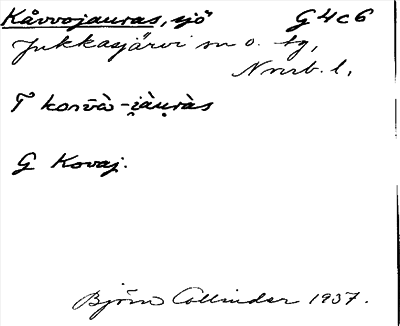 Kåvvojauras, sjö G4c6
Jukkasjärvi sn o. tg,
Nrrb. l.
T korvà-i̯àu̯ràs
G Kovaj.
Björn Collinder 1937.